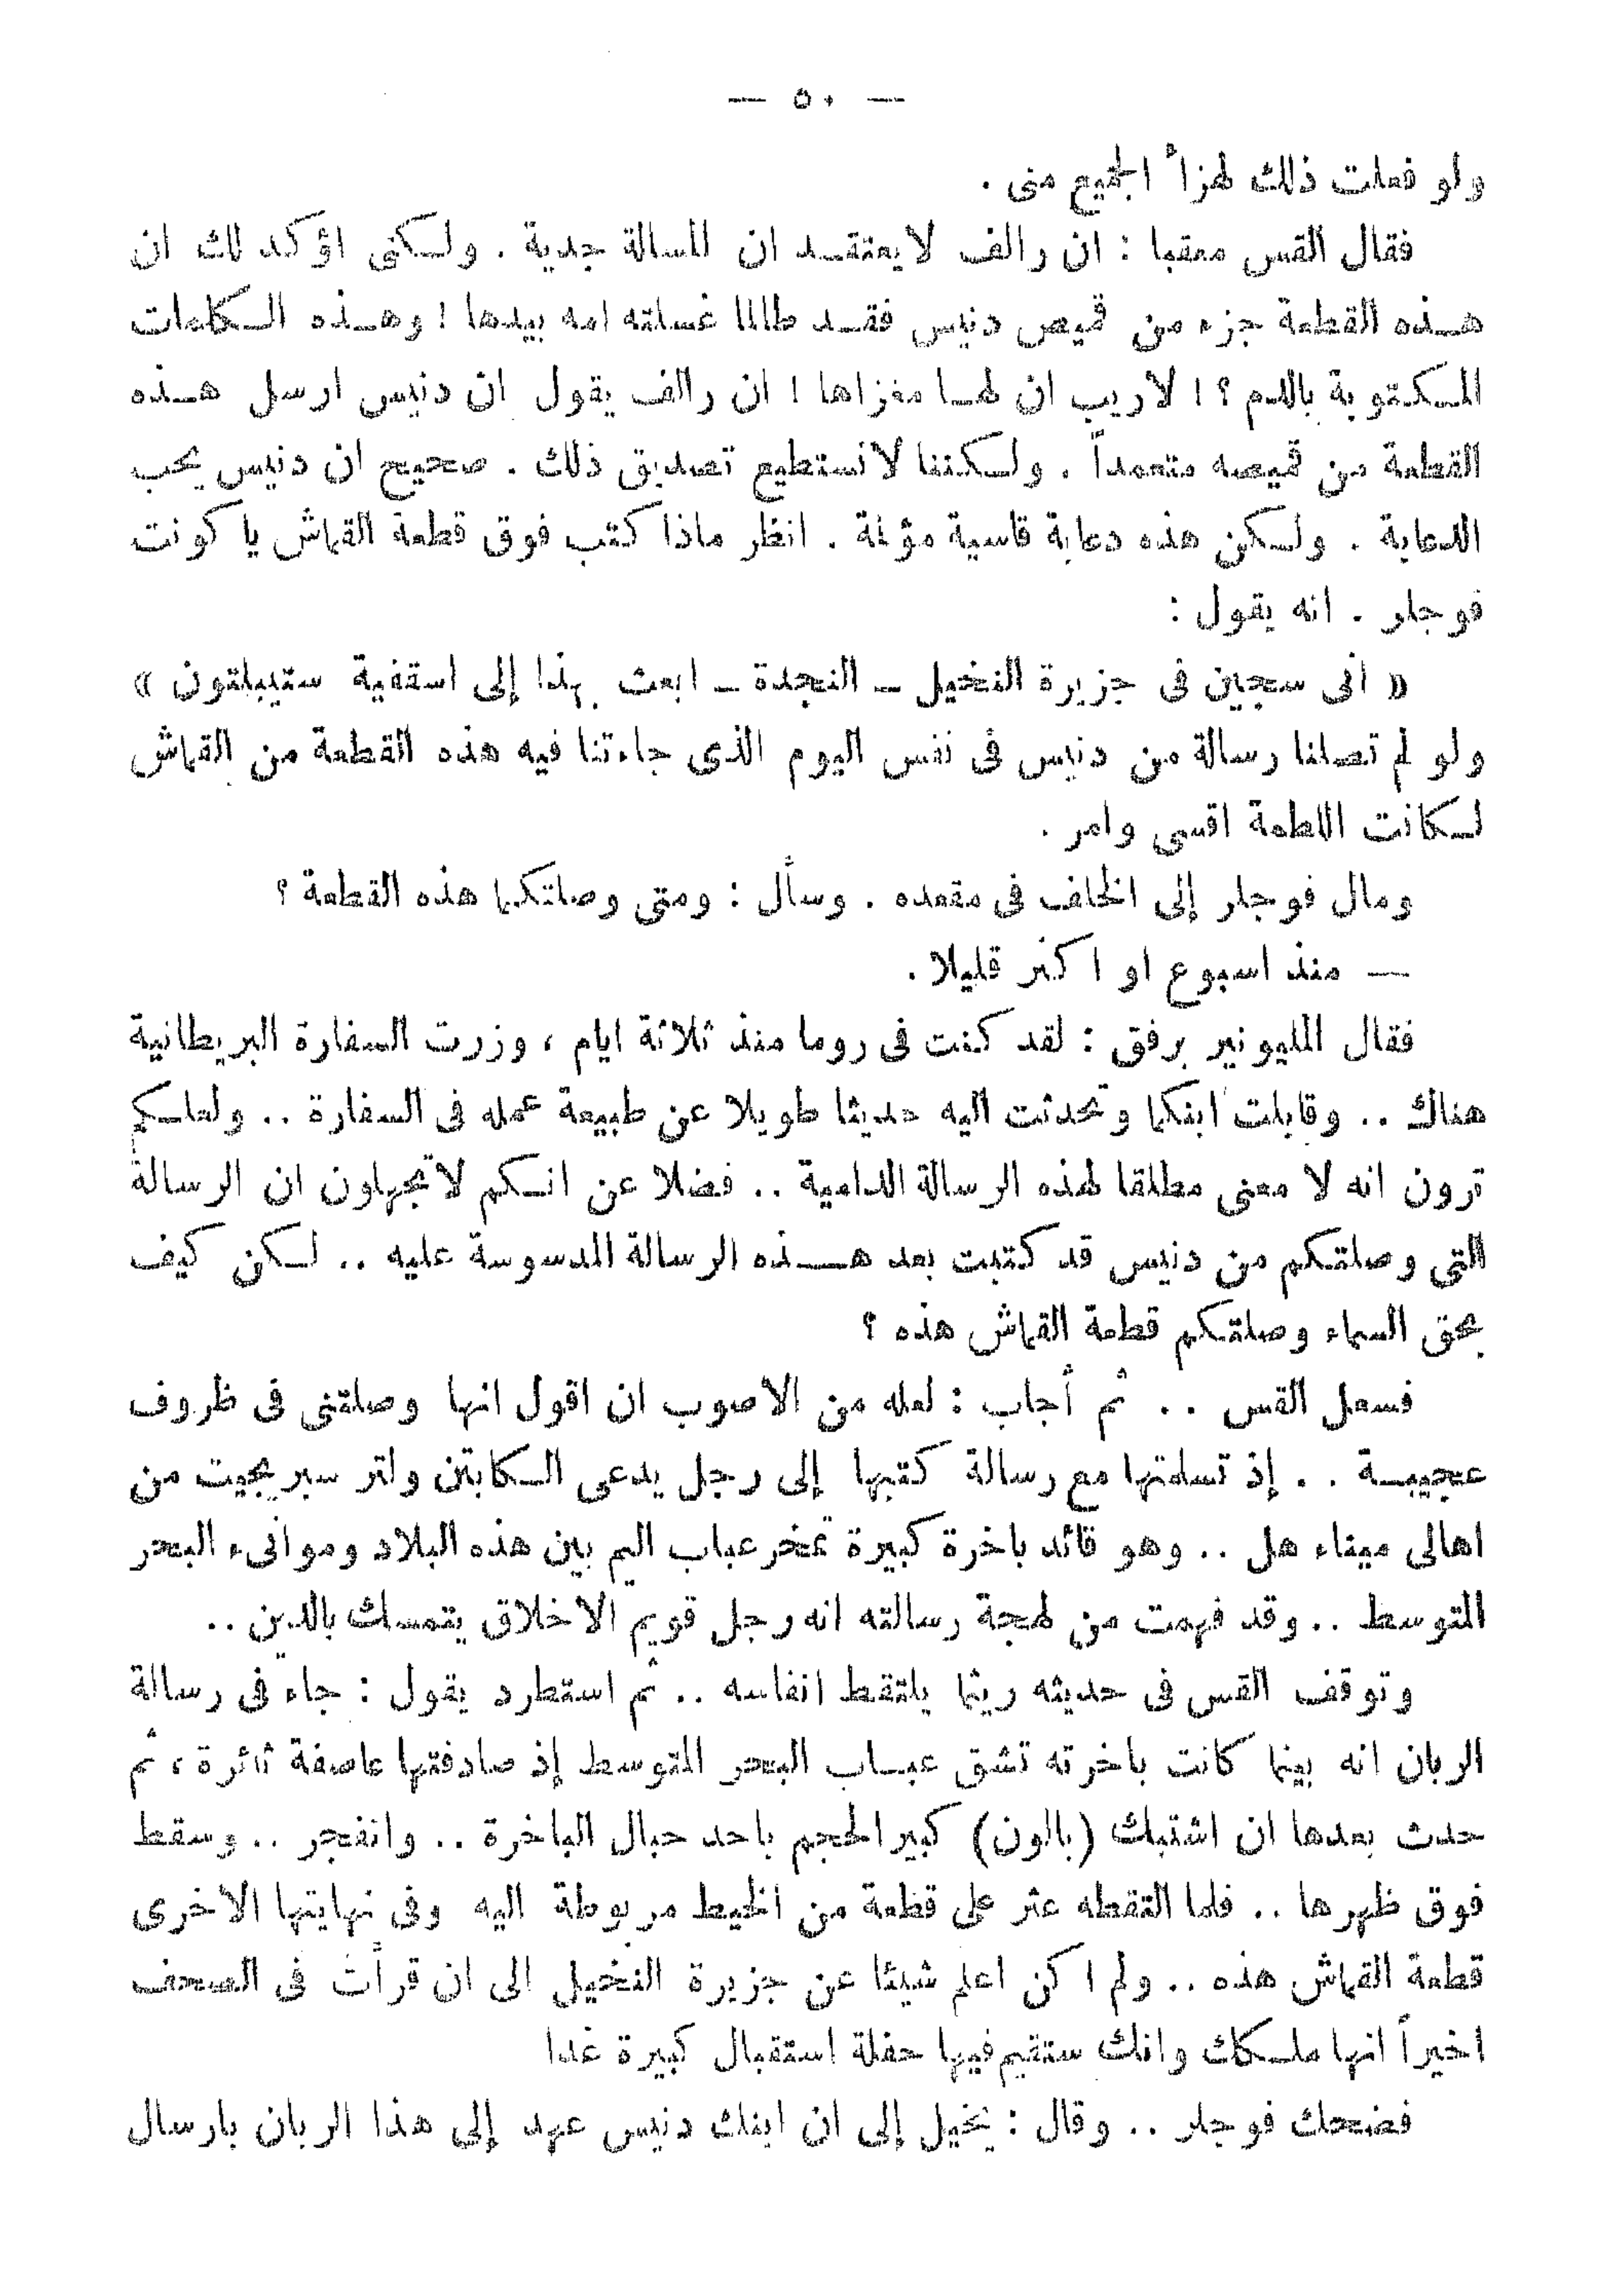 — ٥٠ —
ولو فعلت ذلك لهزأ الجميع منى .
فقال القس معقبا : ان رالف لايعتقد ان المسالة جدية . ولكنى اؤكد لك ان
هذه القطعة جزء من قميص دنيس فقد طالما غسلته امه بيدها ! وهذه الكلمات
المكتوبة بالدم ؟ ! لاريب ان لها مغزاها ! ان رالف يقول ان دنيس ارسل هذه
القطعة من قميصه متعمداً . ولكننا لانستطيع تصديق ذلك . صحيح ان دنيس يحب
الدعابة . ولكن هذه دعابة قاسية مؤلمة . انظر ماذا كتب فوق قطعة القماش يا كونت
فوجلر . انه يقول :
« انى سجين فى جزيرة النخيل – النجدة – ابعث بهذا إلى اسقفية ستيبلتون »
ولو لم تصلنا رسالة من دنيس فى نفس اليوم الذى جاءتنا فيه هذه القطعة من القماش
لكانت اللطمة اقسى وامر .
ومال فوجلر إلى الخلف فى مقعده . وسأل : ومتى وصلتكما هذه القطعة ؟
— منذ اسبوع او اكثر قليلا .
فقال المليونير برفق : لقد كنت فى روما منذ ثلاثة ايام ، وزرت السفارة البريطانية
هناك .. وقابلت ابنكما وتحدثت اليه حديثا طويلا عن طبيعة عمله فى السفارة .. ولعلكم
ترون انه لا معنى مطلقا لهذه الرسالة الدامية .. فضلا عن انكم لاتجهلون ان الرسالة
التى وصلتكم من دنيس قد كتبت بعد هذه الرسالة المدسوسة عليه .. لكن كيف
بحق السماء وصلتكم قطعة القماش هذه ؟
فسعل القس .. ثم أجاب : لعله من الاصوب ان اقول انها وصلتنى فى ظروف
عجيبة .. إذ تسلمتها مع رسالة كتبها إلى رجل يدعى الكابتن ولتر سبريجيت من
اهالى ميناء هل .. وهو قائد باخرة كبيرة تمخر عباب اليم بين هذه البلاد وموانىء البحر
المتوسط .. وقد فهمت من لهجة رسالته انه رجل قويم الاخلاق يتمسك بالدين ..
وتوقف القس فى حديثه ريثما يلتقط انفاسه .. ثم استطرد يقول : جاء فى رسالة
الربان انه بينما كانت باخرته تشق عباب البحر المتوسط إذ صادفتها عاصفة ثائرة ، ثم
حدث بعدها ان اشتبك (بالون) كبير الحجم باحد حبال الباخرة .. وانفجر .. وسقط
فوق ظهرها .. فلما التقطه عثر على قطعة من الخيط مربوطة اليه وفى نهايتها الاخرى
قطعة القماش هذه .. ولم اكن اعلم شيئا عن جزيرة النخيل الى ان قرأت فى الصحف
اخيراً انها ملكك وانك ستقيم فيها حفلة استقبال كبيرة غدا
فضحك فوجلر .. وقال : يخيل إلى ان ابنك دنيس عهد إلى هذا الربان بارسال